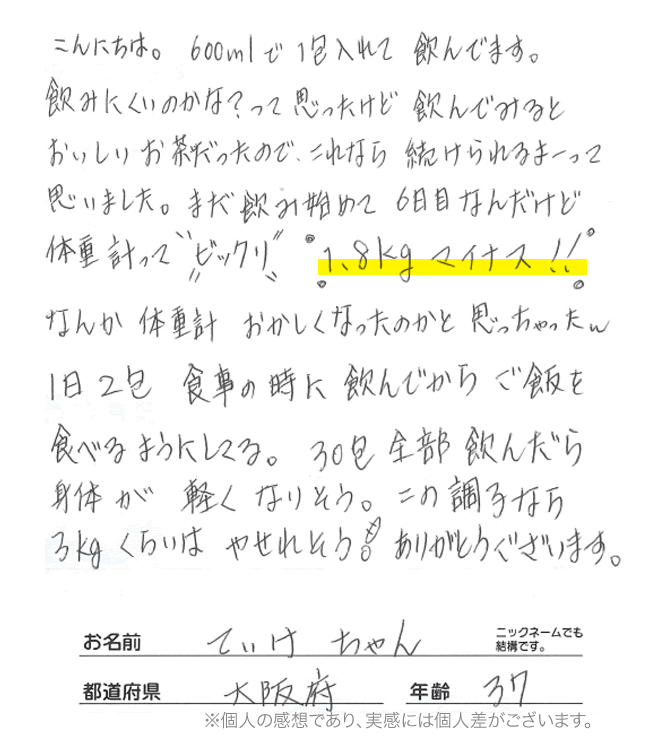 こんにちは。 600mlで1包入れて 飲んでます。
飲みにくいのかな?って思ったけど 飲んでみると
おいしいお茶だったので、これなら 続けられるまーって
思いました。まだ飲み始めて 6日目なんだけど
体重計って"ビックリ" 1.8kg マイナス!!
なんか 体重計 おかしくなったのかと 思っちゃったw
1日2包 食事の時に 飲んでから ご飯を
食べるようにしてる。 30包 全部 飲んだら
身体が 軽く なりそう。この調子なら
3kgくらいは やせれそう!! ありがとうございます。
お名前 てぃけちゃん ニックネームでも
結構です。
都道府県 大阪府 年齢 37
※個人の感想であり、実感には個人差がございます。